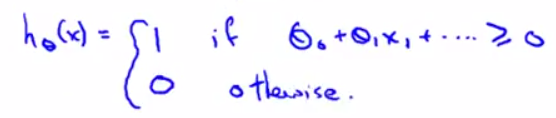 h_θ(x) = { 1 if θ₀ + θ₁x₁ + ···· ≥ 0
0 otherwise.